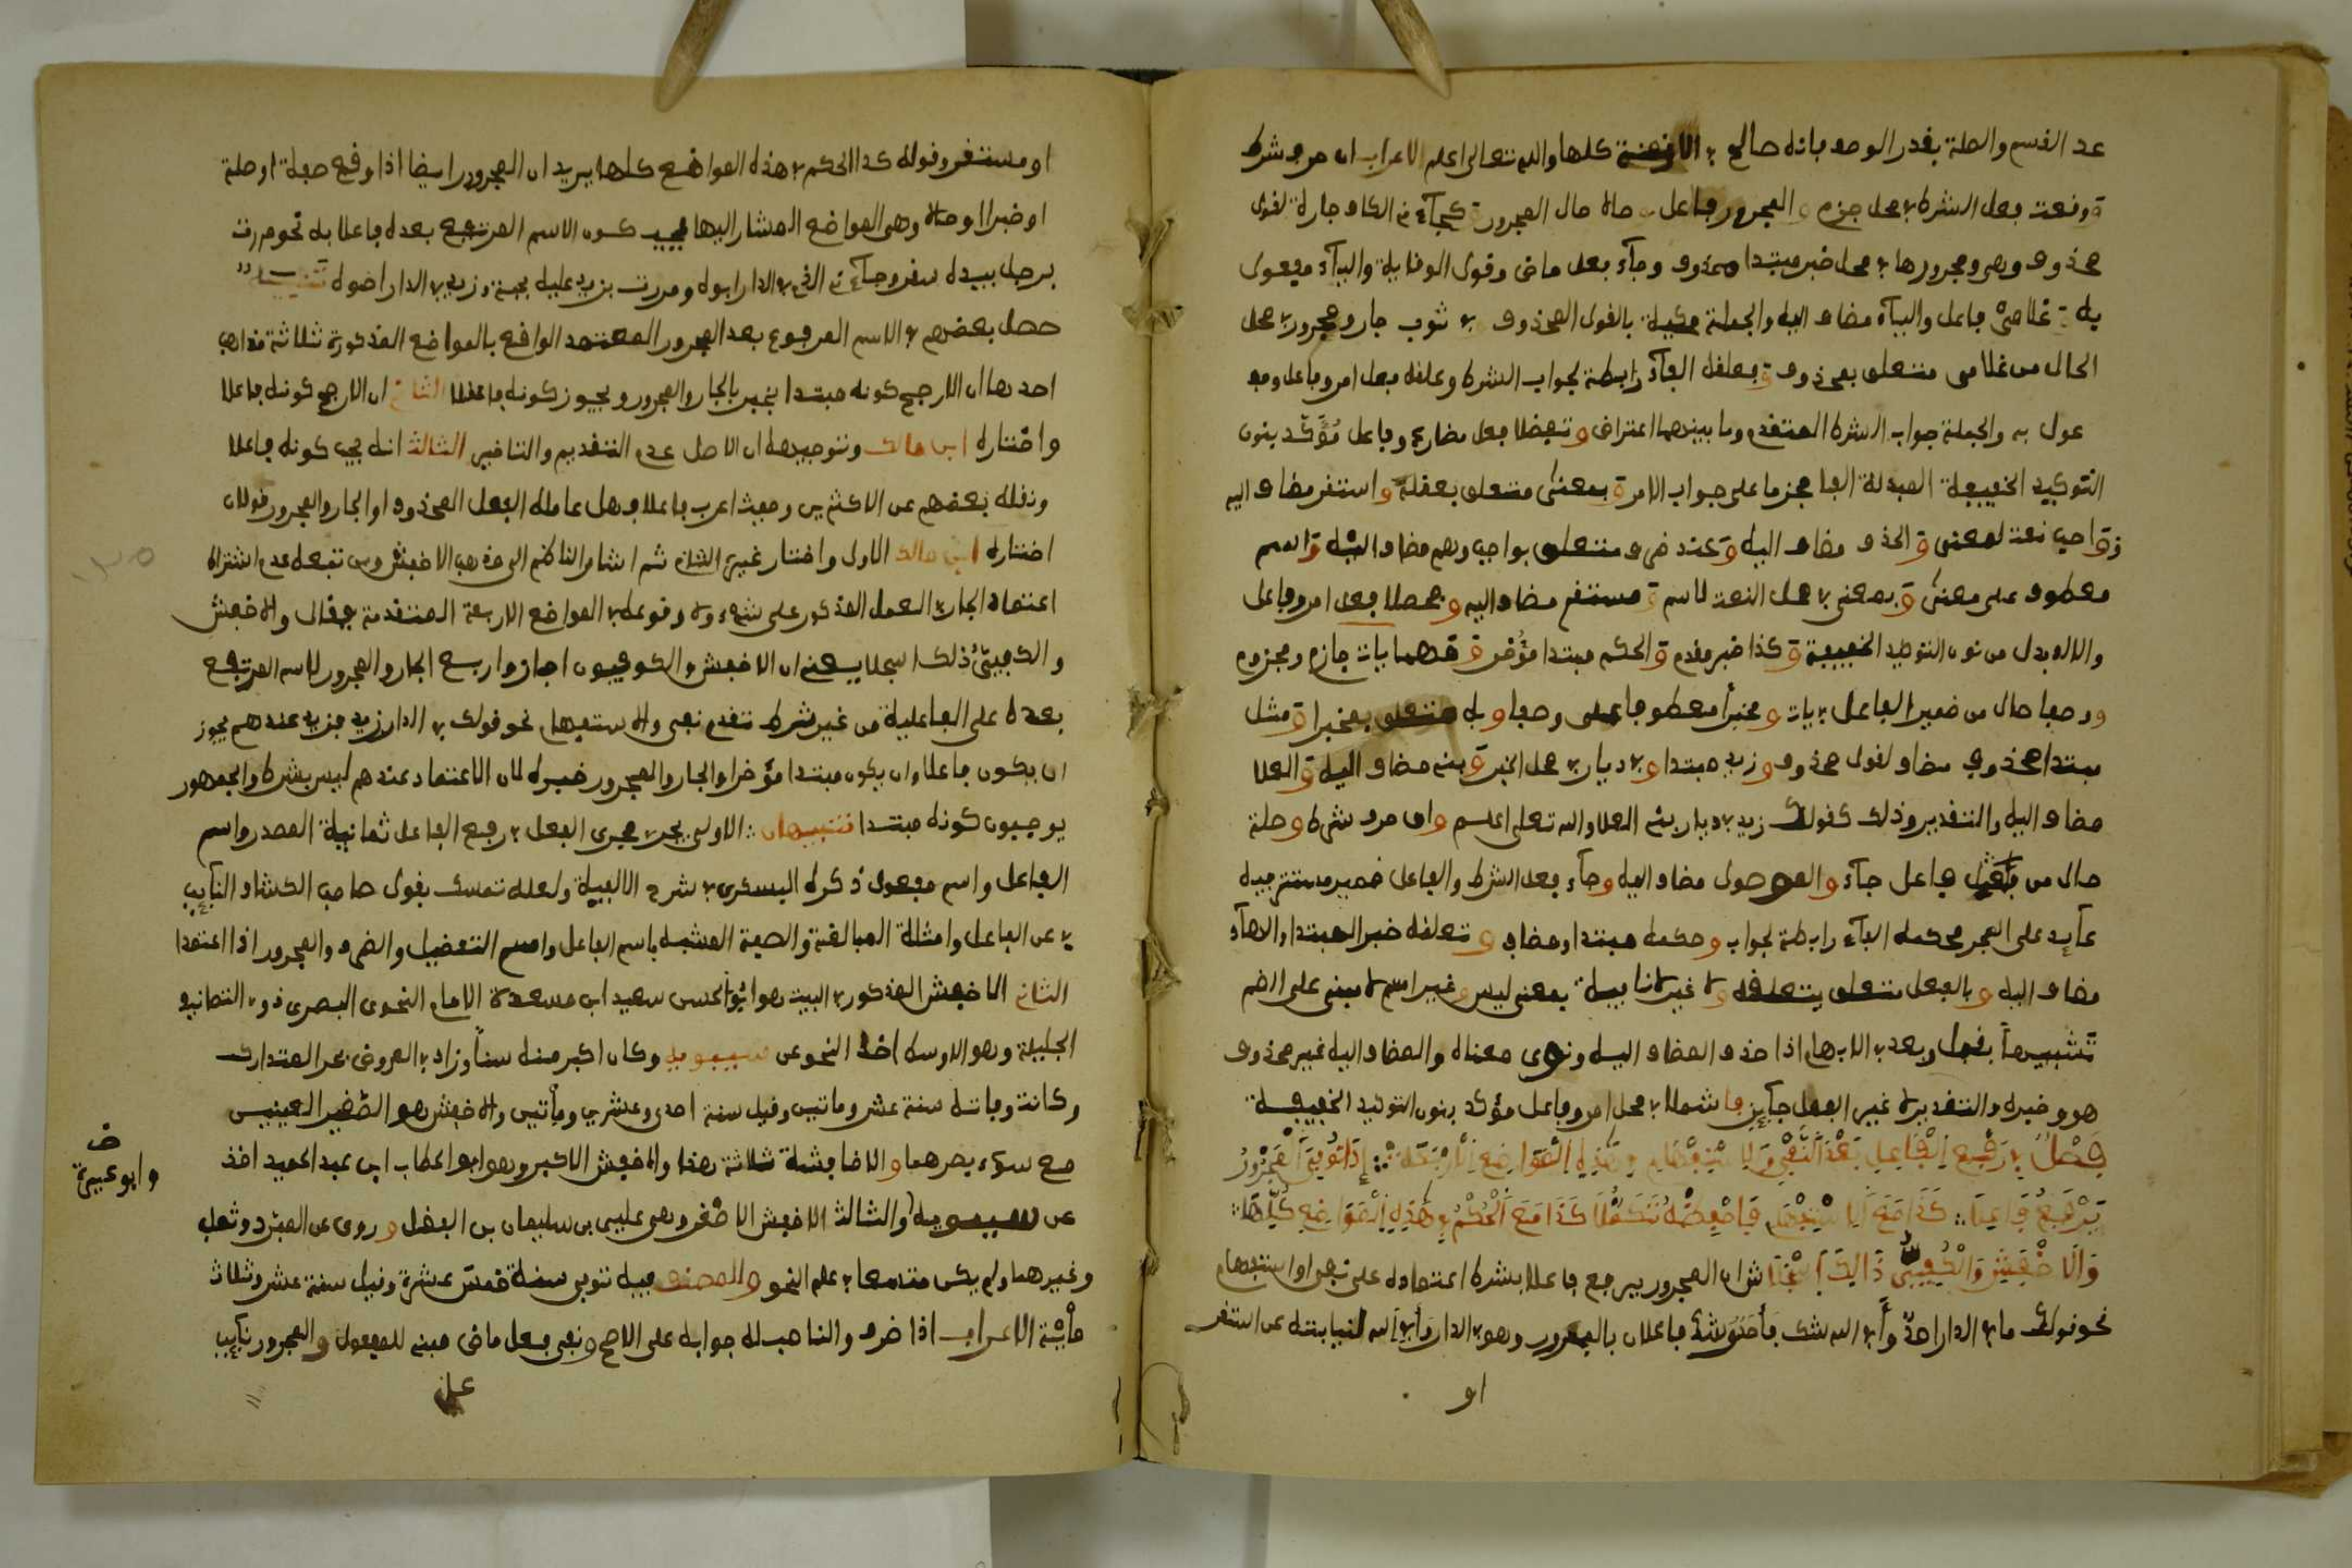 عد القسم والصلة يقدر الوصف بانه صالح في الازمنة كلها والله تعالى اعلم الاعراب ان حرف شرط
وقعت فعل الشرط في محل جزم والمجرور فاعل حالة حال المجرور كجاء في الكاف جارة لقول
محذوف وهو ومجرورها في محل خبر مبتدا محذوف وجاء فعل ماض وقوي الوقاية والياء مفعول
به غلامي فاعل والياء مضاف اليه والجملة محكية بالقول المحذوف في ثوب جار ومجرور في محل
الحال من غلامي متعلق بمحذوف فعلقه الفاء رابطة لجواب الشرط وعلقه فعل امر وفاعل ومفـ
ـعول به والجملة جواب الشرط المتقدم وما بينهما اعتراض وتفضلا فعل مضارع وفاعل مؤكد بنون
التوكيد الخفيفة المبدلة الفا مجزما على جواب الامر بمعنى متعلق بعقله واستقر مضاف اليه
وواجب نعت لمعنى والحذف مضاف اليه وعند ظرف متعلق بواجب وهم مضاف اليه واسم
معطوف على معنى وبمعنى في محل النعت لاسم مستقر مضاف اليه وحصلا فعل امر وفاعل
والالف بدل من نون التوكيد الخفيفة وكذا خبر مقدم والحكم مبتدا مؤخر وقدما يات جازم ومجزوم
ووصفا حال من ضمير الفاعل في يات ومخبرا معطوفا على وصفا وبه متعلق بمخبرا ومثل
مبتدا محذوف مضاف لقول محذوف وزيد مبتدا وفي ديار في محل الخبر وبني مضاف اليه والعلا
مضاف اليه والتقدير وذلك كقولك زيد في ديار بني العلا والله تعلى اعلم وان حرف شرط وصلة
حال من فاعل جاء والموصول مضاف اليه وجاء فعل الشرط والفاعل ضمير مستتر فيه
عايد على المجرر فحكمه الفاء رابطة لجواب وحكمه مبتدا ومضاف وتعلقه خبر المبتدا والهاء
مضاف اليه وبالفعل متعلق بتعلقه ولا غير لا نافية بمعنى ليس وغير اسم لا مبني على الضم
تشبيها بقبل وبعد في الابهام اذا حذف المضاف اليه ونوى معناه والمضاف اليه غير محذوف
هو وخبره والتقدير لا غير الفعل جايز فاشملا في محل امر وفاعل مؤكد بنون التوكيد الخفيفة
فصل في رفع الفاعل بعد النفي والاستفهام وهذه المواضع الاربعة إذا نفي المجرور
يرفع فاعلا كذا مع الاستفهام فاحفظه تكملا كذا مع الحكم في هذه المواضع كلها
والاخفش والكوفي ذالك اسجلا ش ان المجرور يرفع فاعلا بشرط اعتماده على نفي او استفهام
نحو قولك ما في الدار احد وأفي الله شك فأحد وشك فاعلان بالمجرور وهو في الدار وأفي الله لنيابته عن استقر
او
او مستقر وقوله كذا الحكم في هذه المواضع كلها يريد ان المجرور ايضا اذا وقع صفة او صلة
او خبرا او حالا وهي المواضع المشار اليها فيجب كون الاسم المرتفع بعده فاعلا به نحو مررت
برجل بيده سفر وجاء في الذي في الدار ابوه ومررت بزيد عليه جبة وزيد في الدار اخوه تنبيه
حصل بعضهم في الاسم المرفوع بعد المجرور المعتمد الواقع بالمواضع المذكورة ثلاثة مذاهب
احدها ان الارجح كونه مبتدا يخبر بالجار والمجرور ويجوز كونه فاعلا الثاني ان الارجح كونه فاعلا
واختاره ابن مالك وتوجيهه ان الاصل عدم التقديم والتاخير الثالث انه يجب كونه فاعلا
ونقله بعضهم عن الاكثرين وحيث اعرب فاعلا فهل عامله الفعل المحذوف او الجار والمجرور قولان
اختاره ابن مالك الاول واختار غيره الثاني ثم اشار الناظم الى مذهب الاخفش ومن تبعه عدم اشتراط
اعتماد الجار في العمل المذكور على شيء ولا وقوعه في المواضع الاربعة المتقدمة فقال والاخفش
والكوفي ذلك اسجلا يعني ان الاخفش والكوفيون اجازوا رفع الجار والمجرور للاسم المرتفع
بعده على الفاعلية من غير شرط تقدم نفي والاستفهام نحو قولك في الدار زيد فزيد عندهم يجوز
ان يكون فاعلا وان يكون مبتدا مؤخرا والجار والمجرور خبره لان الاعتماد عندهم ليس بشرط والجمهور
يوجبون كونه مبتدا تنبيهان الاول يجري مجرى الفعل في رفع الفاعل ثمانية المصدر واسم
الفاعل واسم مفعول ذكره البسكري في شرح الالفية ولعله تمسك بقول صاحب الكشاف النايب
عن الفاعل وامثلة المبالغة والصفة المشبه باسم الفاعل واسم التفضيل والظرف والمجرور اذا اعتمدا
الثاني الاخفش المذكور في البيت هو ابو الحسن سعيد ابن مسعدة الامام النحوي البصري ذو التصانيف
الجليلة وهو الاوسط اخذ النحو عن سيبويه وكان اكبر منه سنا وزاد في العروض بحر المتدارك
وكانت وفاته سنة عشر وماتين وقيل سنة احدى وعشري ومأتين والاخفش هو الصغير العينين
مع سوء بصرهما والاخافشة ثلاثة هذا والاخفش الاكبر وهو ابو الخطاب ابن عبد الحميد اخذ
وابو عبيدة
عن سيبويه والثالث الاخفش الاصغر وهو علي بن سليمان بن الفضل وروى عن المبرد وثعلب
وغيرهما ولم يكن متسعا في علم النحو والمصنف فيه توفي سنة خمس عشرة وقيل سنة عشر وثلاث
مأئة الاعراب اذا ظرف والناصب له جوابه على الاصح ونفي فعل ماض مبني للمفعول والمجرور نايب
عن